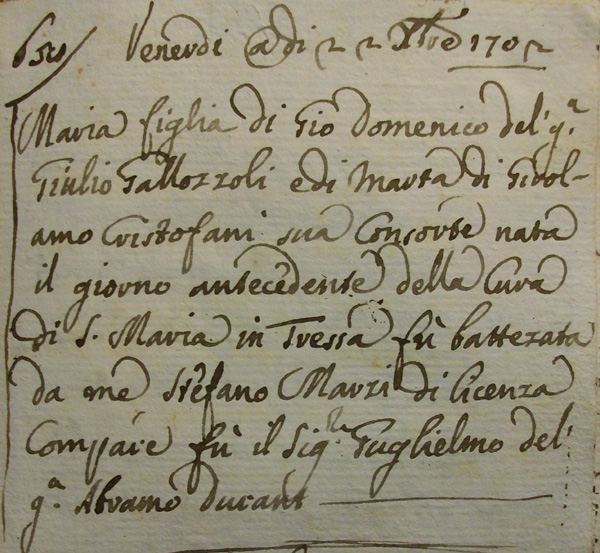 Venerdi @di 22 Xbrē 1702
Maria figlia di Gio Domenico del q.ᵃ
Giulio Gallozzoli e di Marta di Girol-
amo Cristofani sua Consorte nata
il giorno antecedente della Cura
di S. Maria in Tressa fù battezata
da me Stefano Marzi di licenza
Compare fù il Sig.ʳᵉ Guglielmo del
q.ᵃ Abramo Durant